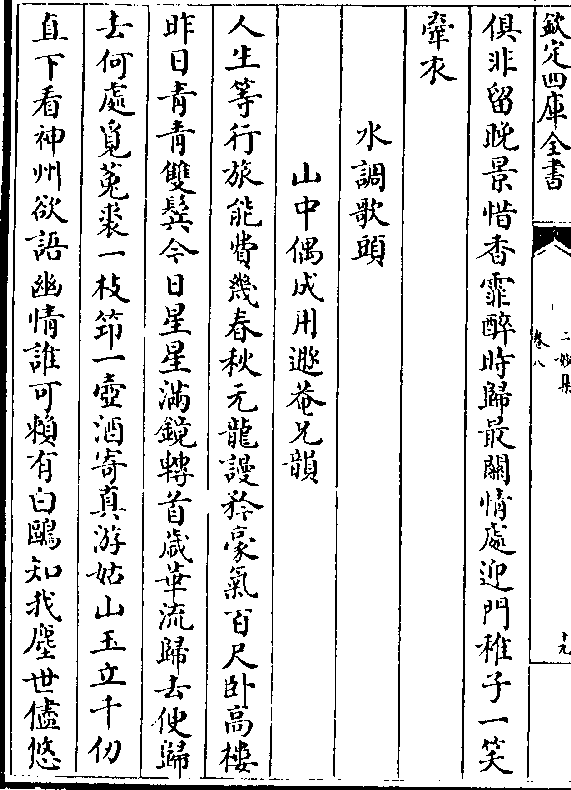 欽定四庫全書
二妙集
卷八
十九
俱非留晚景惜香霏醉時歸最關情處迎門稚子一笑
牽衣
水調歌頭
山中偶成用遯菴兄韻
人生等行旅能費幾春秋元龍謾矜豪氣百尺卧高樓
昨日青青雙鬂今日星星滿鏡轉首歲華流歸去便歸
去何處覓菟裘一枝筇一壺酒寄真游姑山玉立千仞
直下看神州欲語幽情誰可賴有白鷗知我塵世儘悠